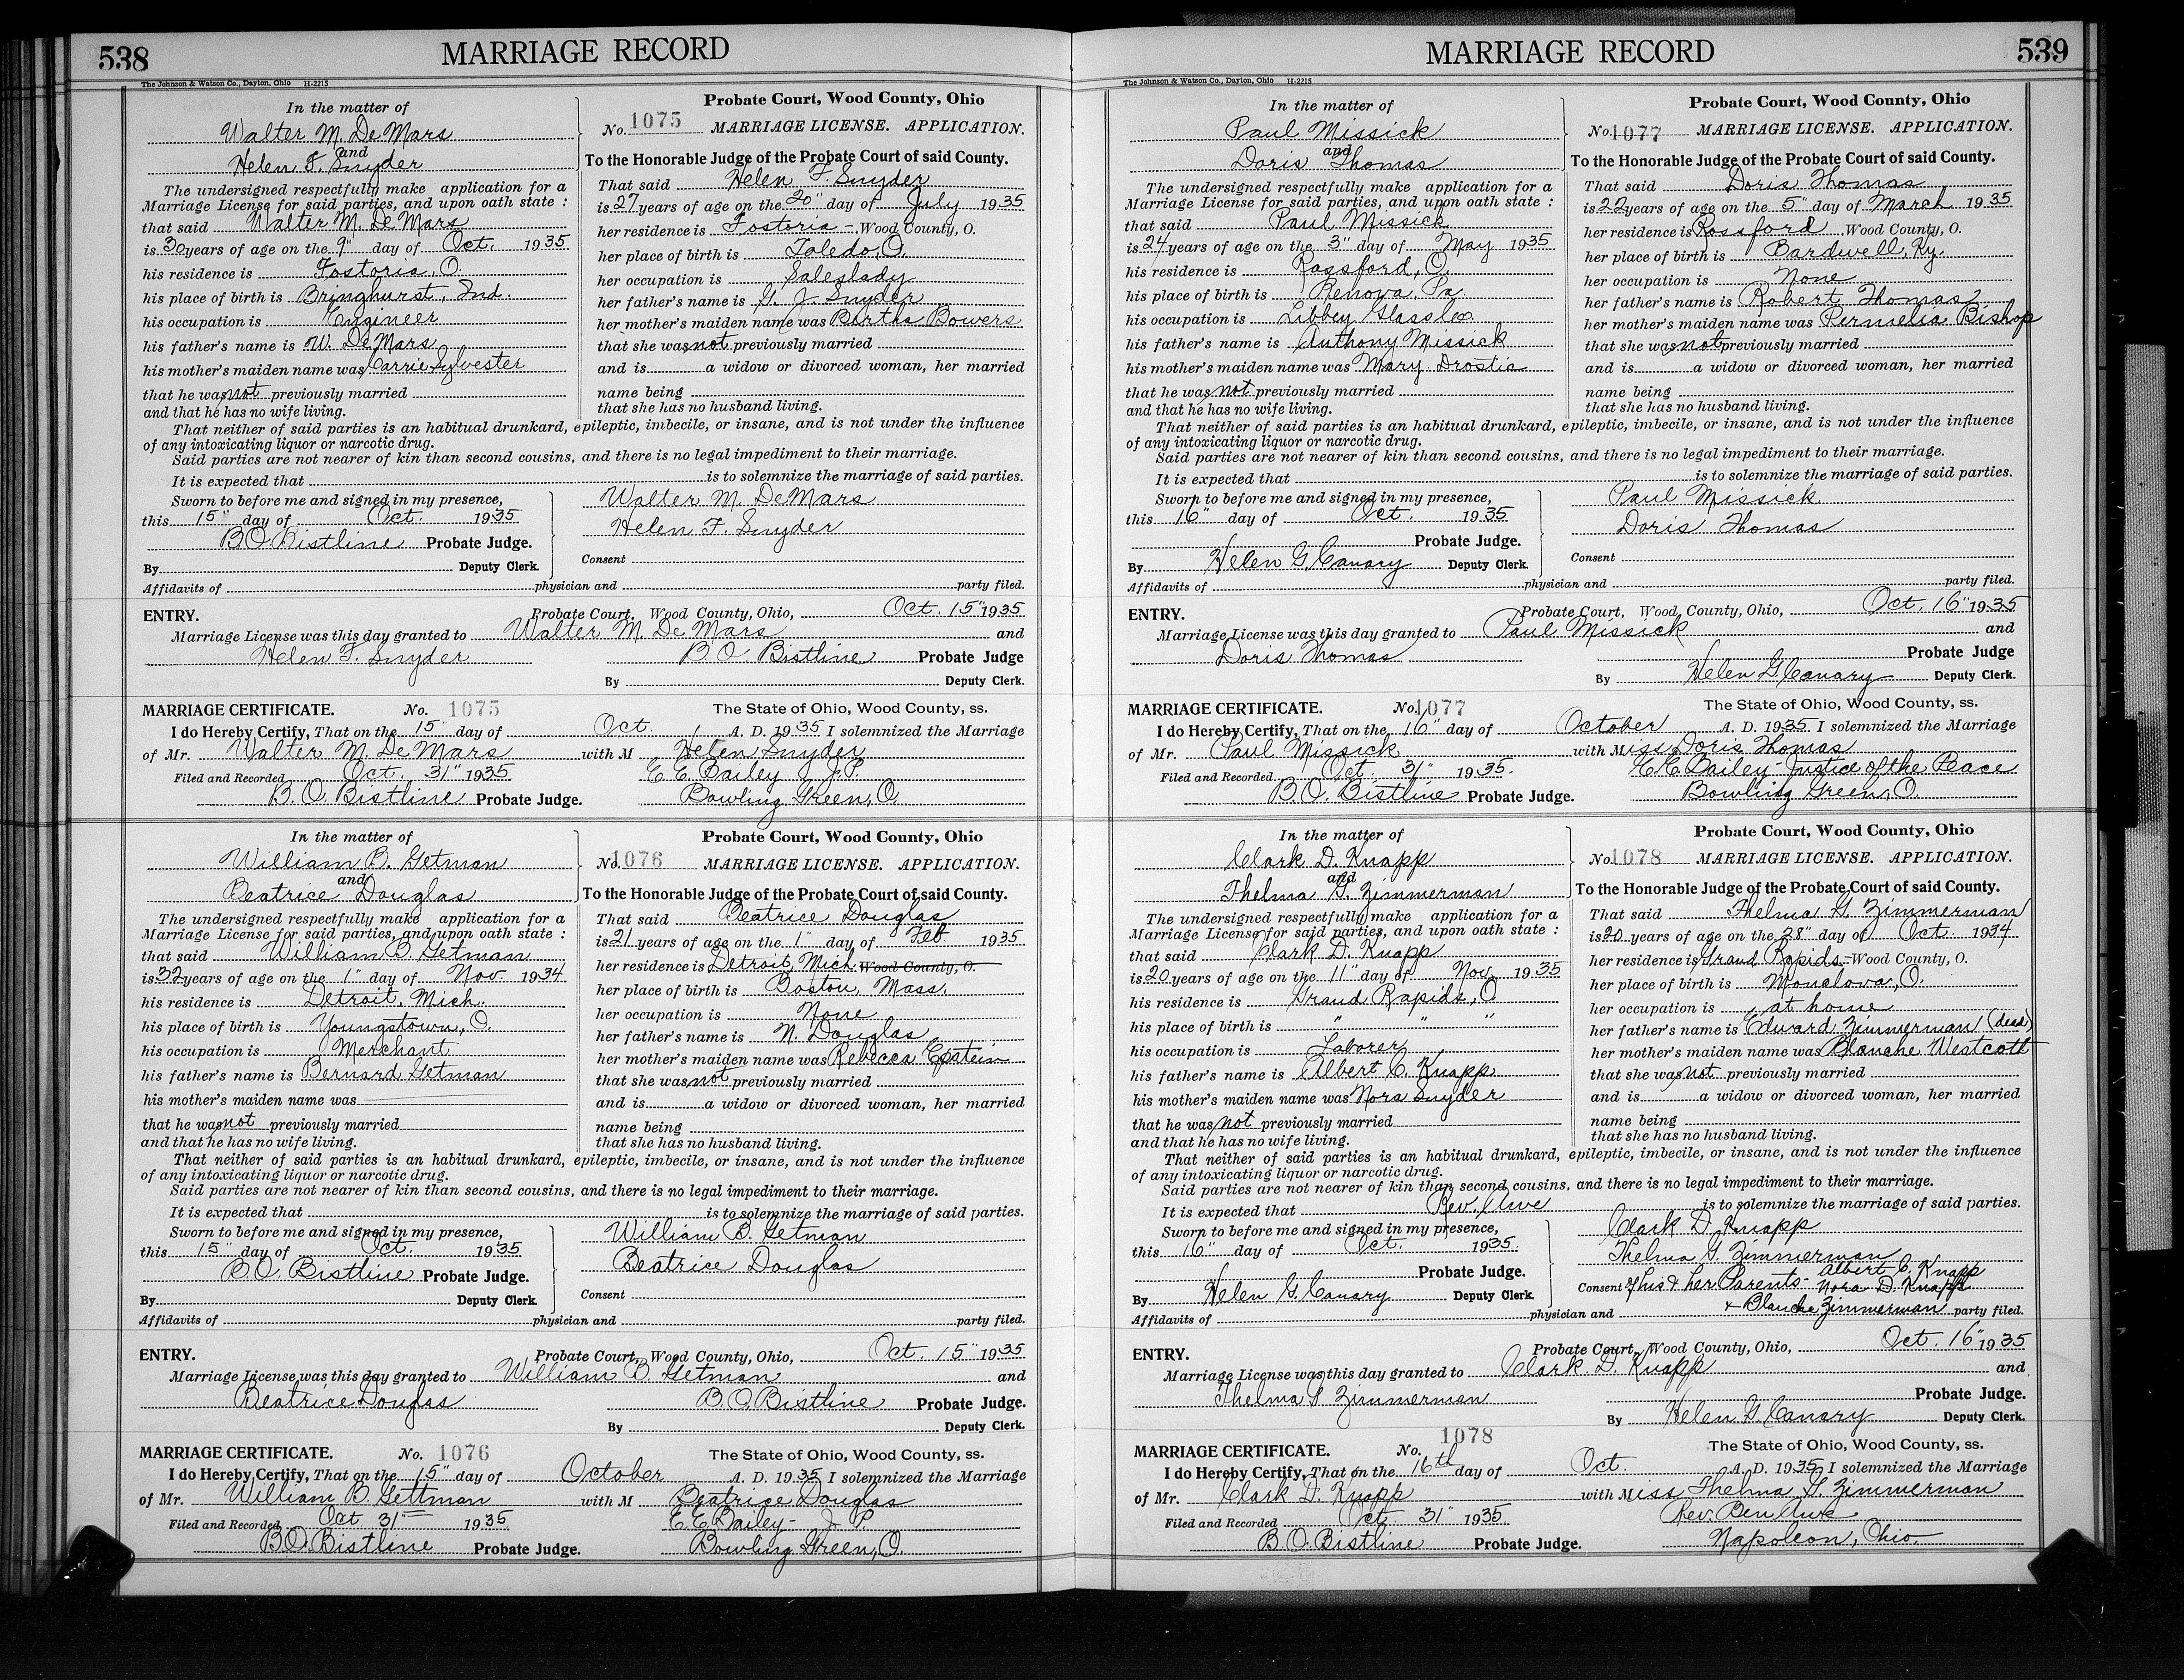 538
MARRIAGE RECORD
The Johnson & Watson Co., Dayton, Ohio H-2215
In the matter of
Walter M. De Mars
and
Helen F. Snyder
The undersigned respectfully make application for a
Marriage License for said parties, and upon oath state :
that said Walter M. De Mars
is 30 years of age on the 9" day of Oct. 1935
his residence is Fostoria, O.
his place of birth is Bringhurst, Ind.
his occupation is Engineer
his father's name is W. De Mars
his mother's maiden name was Carrie Sylvester
that he was not previously married
and that he has no wife living.
Probate Court, Wood County, Ohio
No. 1075 MARRIAGE LICENSE. APPLICATION.
To the Honorable Judge of the Probate Court of said County.
That said Helen F. Snyder
is 27 years of age on the 20" day of July 1935
her residence is Fostoria - Wood County, O.
her place of birth is Toledo, O.
her occupation is Saleslady
her father's name is G. J. Snyder
her mother's maiden name was Bertha Bowers
that she was not previously married
and is a widow or divorced woman, her married
name being
that she has no husband living.
That neither of said parties is an habitual drunkard, epileptic, imbecile, or insane, and is not under the influence
of any intoxicating liquor or narcotic drug.
Said parties are not nearer of kin than second cousins, and there is no legal impediment to their marriage.
It is expected that is to solemnize the marriage of said parties.
Sworn to before me and signed in my presence,
this 15" day of Oct. 1935
B. O. Bistline Probate Judge.
By Deputy Clerk.
Walter M. De Mars
Helen F. Snyder
Consent
Affidavits of physician and party filed.
ENTRY. Probate Court, Wood County, Ohio, Oct. 15" 1935
Marriage License was this day granted to Walter M. De Mars and
Helen F. Snyder B. O. Bistline Probate Judge
By Deputy Clerk.
MARRIAGE CERTIFICATE. No. 1075 The State of Ohio, Wood County, ss.
I do Hereby Certify, That on the 15" day of Oct. A. D. 1935 I solemnized the Marriage
of Mr. Walter M. De Mars with M Helen Snyder
Filed and Recorded Oct. 31" 1935 E. E. Bailey J. P.
B. O. Bistline Probate Judge. Bowling Green, O.
In the matter of
William B. Getman
and
Beatrice Douglas
The undersigned respectfully make application for a
Marriage License for said parties, and upon oath state :
that said William B. Getman
is 32 years of age on the 1" day of Nov. 1934
his residence is Detroit, Mich.
his place of birth is Youngstown, O.
his occupation is Merchant
his father's name is Bernard Getman
his mother's maiden name was
that he was not previously married
and that he has no wife living.
Probate Court, Wood County, Ohio
No. 1076 MARRIAGE LICENSE. APPLICATION.
To the Honorable Judge of the Probate Court of said County.
That said Beatrice Douglas
is 21 years of age on the 1" day of Feb. 1935
her residence is Detroit, Mich. Wood County, O.
her place of birth is Boston, Mass.
her occupation is None
her father's name is N. Douglas
her mother's maiden name was Rebecca Epstein
that she was not previously married
and is a widow or divorced woman, her married
name being
that she has no husband living.
That neither of said parties is an habitual drunkard, epileptic, imbecile, or insane, and is not under the influence
of any intoxicating liquor or narcotic drug.
Said parties are not nearer of kin than second cousins, and there is no legal impediment to their marriage.
It is expected that is to solemnize the marriage of said parties.
Sworn to before me and signed in my presence,
this 15" day of Oct. 1935
B. O. Bistline Probate Judge.
By Deputy Clerk.
William B. Getman
Beatrice Douglas
Consent
Affidavits of physician and party filed.
ENTRY. Probate Court, Wood County, Ohio, Oct. 15" 1935
Marriage License was this day granted to William B. Getman and
Beatrice Douglas B. O. Bistline Probate Judge.
By Deputy Clerk.
MARRIAGE CERTIFICATE. No. 1076 The State of Ohio, Wood County, ss.
I do Hereby Certify, That on the 15" day of October A. D. 1935 I solemnized the Marriage
of Mr. William B. Gettman with M Beatrice Douglas
Filed and Recorded Oct. 31" 1935 E. E. Bailey - J. P.
B. O. Bistline Probate Judge. Bowling Green, O.
MARRIAGE RECORD
539
The Johnson & Watson Co., Dayton, Ohio H-2215
In the matter of
Paul Missick
and
Doris Thomas
The undersigned respectfully make application for a
Marriage License for said parties, and upon oath state :
that said Paul Missick
is 24 years of age on the 3" day of May 1935
his residence is Rossford, O.
his place of birth is Renova, Pa.
his occupation is Libbey Glass Co.
his father's name is Anthony Missick
his mother's maiden name was Mary Drostis
that he was not previously married
and that he has no wife living.
Probate Court, Wood County, Ohio
No. 1077 MARRIAGE LICENSE. APPLICATION.
To the Honorable Judge of the Probate Court of said County.
That said Doris Thomas
is 22 years of age on the 5" day of March 1935
her residence is Rossford Wood County, O.
her place of birth is Bardwell, Ky.
her occupation is None
her father's name is Robert Thomas
her mother's maiden name was Permelia Bishop
that she was not previously married
and is a widow or divorced woman, her married
name being
that she has no husband living.
That neither of said parties is an habitual drunkard, epileptic, imbecile, or insane, and is not under the influence
of any intoxicating liquor or narcotic drug.
Said parties are not nearer of kin than second cousins, and there is no legal impediment to their marriage.
It is expected that is to solemnize the marriage of said parties.
Sworn to before me and signed in my presence,
this 16" day of Oct. 1935
Probate Judge.
By Helen G Canary Deputy Clerk.
Paul Missick
Doris Thomas
Consent
Affidavits of physician and party filed.
ENTRY. Probate Court, Wood County, Ohio, Oct. 16" 1935
Marriage License was this day granted to Paul Missick and
Doris Thomas Probate Judge
By Helen G Canary Deputy Clerk.
MARRIAGE CERTIFICATE. No. 1077 The State of Ohio, Wood County, ss.
I do Hereby Certify, That on the 16" day of October A. D. 1935 I solemnized the Marriage
of Mr. Paul Missick with Miss Doris Thomas
Filed and Recorded Oct. 31" 1935. E. E. Bailey - Justice of the Peace
B. O. Bistline Probate Judge. Bowling Green, O.
In the matter of
Clark D. Knapp
and
Thelma G. Zimmerman
The undersigned respectfully make application for a
Marriage License for said parties, and upon oath state :
that said Clark D. Knapp
is 20 years of age on the 11" day of Nov. 1935
his residence is Grand Rapids, O.
his place of birth is " " "
his occupation is Laborer
his father's name is Albert C. Knapp
his mother's maiden name was Nora Snyder
that he was not previously married
and that he has no wife living.
Probate Court, Wood County, Ohio
No. 1078 MARRIAGE LICENSE. APPLICATION.
To the Honorable Judge of the Probate Court of said County.
That said Thelma G. Zimmerman
is 20 years of age on the 28" day of Oct. 1934
her residence is Grand Rapids. - Wood County, O.
her place of birth is Monclova, O.
her occupation is at home
her father's name is Edward Zimmerman (dead)
her mother's maiden name was Blanche Westcott
that she was not previously married
and is a widow or divorced woman, her married
name being
that she has no husband living.
That neither of said parties is an habitual drunkard, epileptic, imbecile, or insane, and is not under the influence
of any intoxicating liquor or narcotic drug.
Said parties are not nearer of kin than second cousins, and there is no legal impediment to their marriage.
It is expected that Rev. Awe is to solemnize the marriage of said parties.
Sworn to before me and signed in my presence,
this 16" day of Oct. 1935
Probate Judge.
By Helen G. Canary Deputy Clerk.
Clark D. Knapp
Thelma G. Zimmerman
Consent of his & her Parents - Albert C. Knapp
Nora D. Knapp
+ Blanche Zimmerman
Affidavits of physician and party filed.
ENTRY. Probate Court, Wood County, Ohio, Oct. 16" 1935
Marriage License was this day granted to Clark D. Knapp and
Thelma G Zimmerman Probate Judge.
By Helen G. Canary Deputy Clerk.
MARRIAGE CERTIFICATE. No. 1078 The State of Ohio, Wood County, ss.
I do Hereby Certify, That on the 16th day of Oct. A. D. 1935 I solemnized the Marriage
of Mr. Clark D. Knapp with Miss Thelma G. Zimmerman
Filed and Recorded Oct. 31" 1935. Rev. Ben Awe
B. O. Bistline Probate Judge. Napoleon, Ohio.